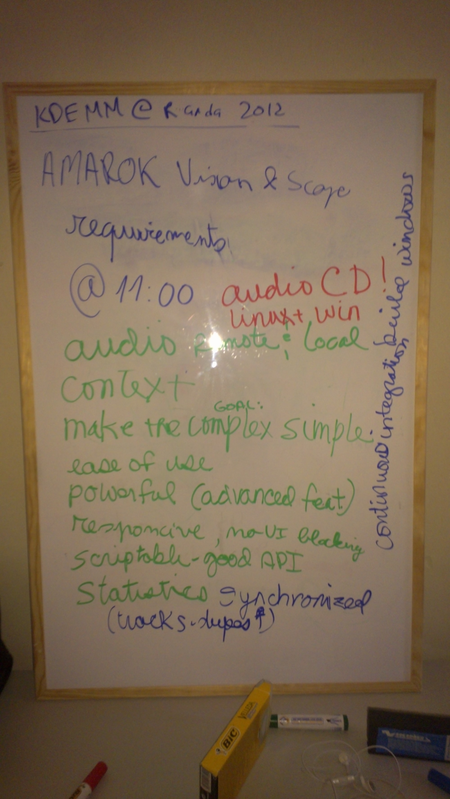 KDE MM @ Randa 2012
AMAROK Vision & Scope
requirements
@ 11:00
audio CD!
linux + win
audio remote & local
context
GOAL:
make the complex simple
ease of use
powerful (advanced feat)
responcive, no UI blocking
scriptable - good API
Statistics synchronized
(tracks - dupes)
continuous integration build windows
BIC